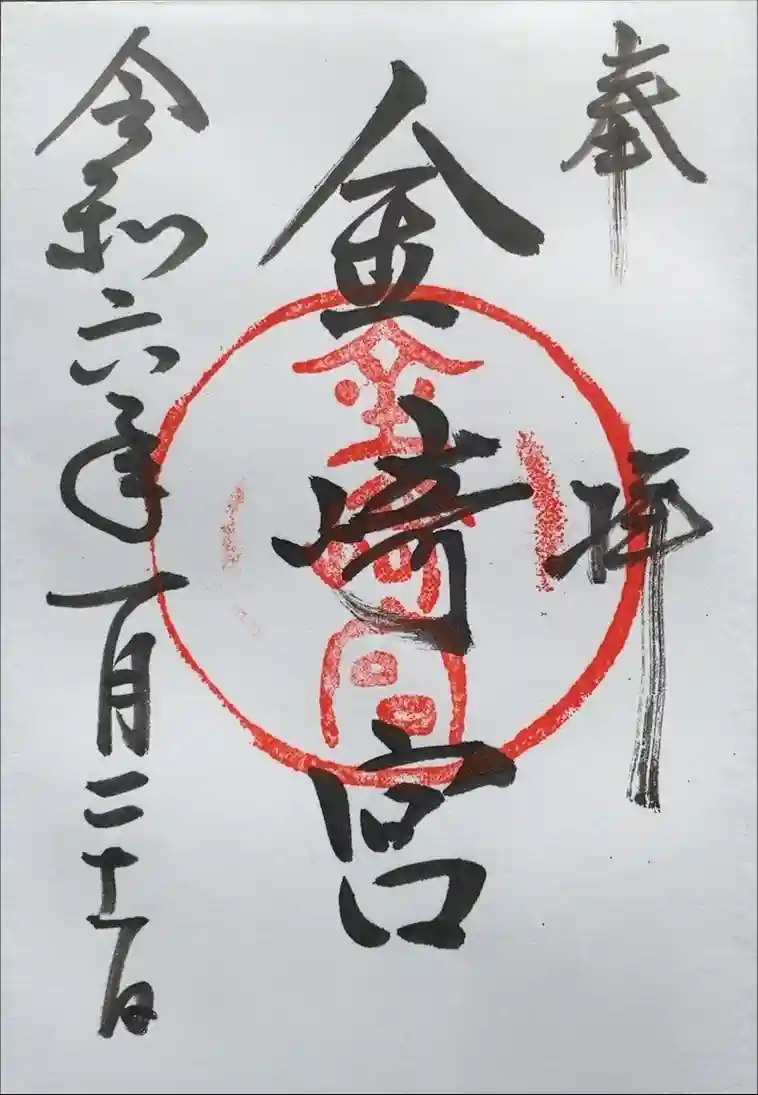 奉拝
金崎宮
金崎宮
令和六年一月二十一日